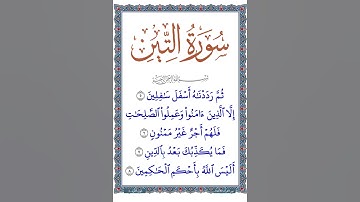 سُورَةُ التِّينِ
بِسْمِ اللَّهِ الرَّحْمَٰنِ الرَّحِيمِ
ثُمَّ رَدَدْنَٰهُ أَسْفَلَ سَٰفِلِينَ ٥
إِلَّا ٱلَّذِينَ ءَامَنُوا۟ وَعَمِلُوا۟ ٱلصَّٰلِحَٰتِ
فَلَهُمْ أَجْرٌ غَيْرُ مَمْنُونٍ ٦
فَمَا يُكَذِّبُكَ بَعْدُ بِٱلدِّينِ ٧
أَلَيْسَ ٱللَّهُ بِأَحْكَمِ ٱلْحَٰكِمِينَ ٨